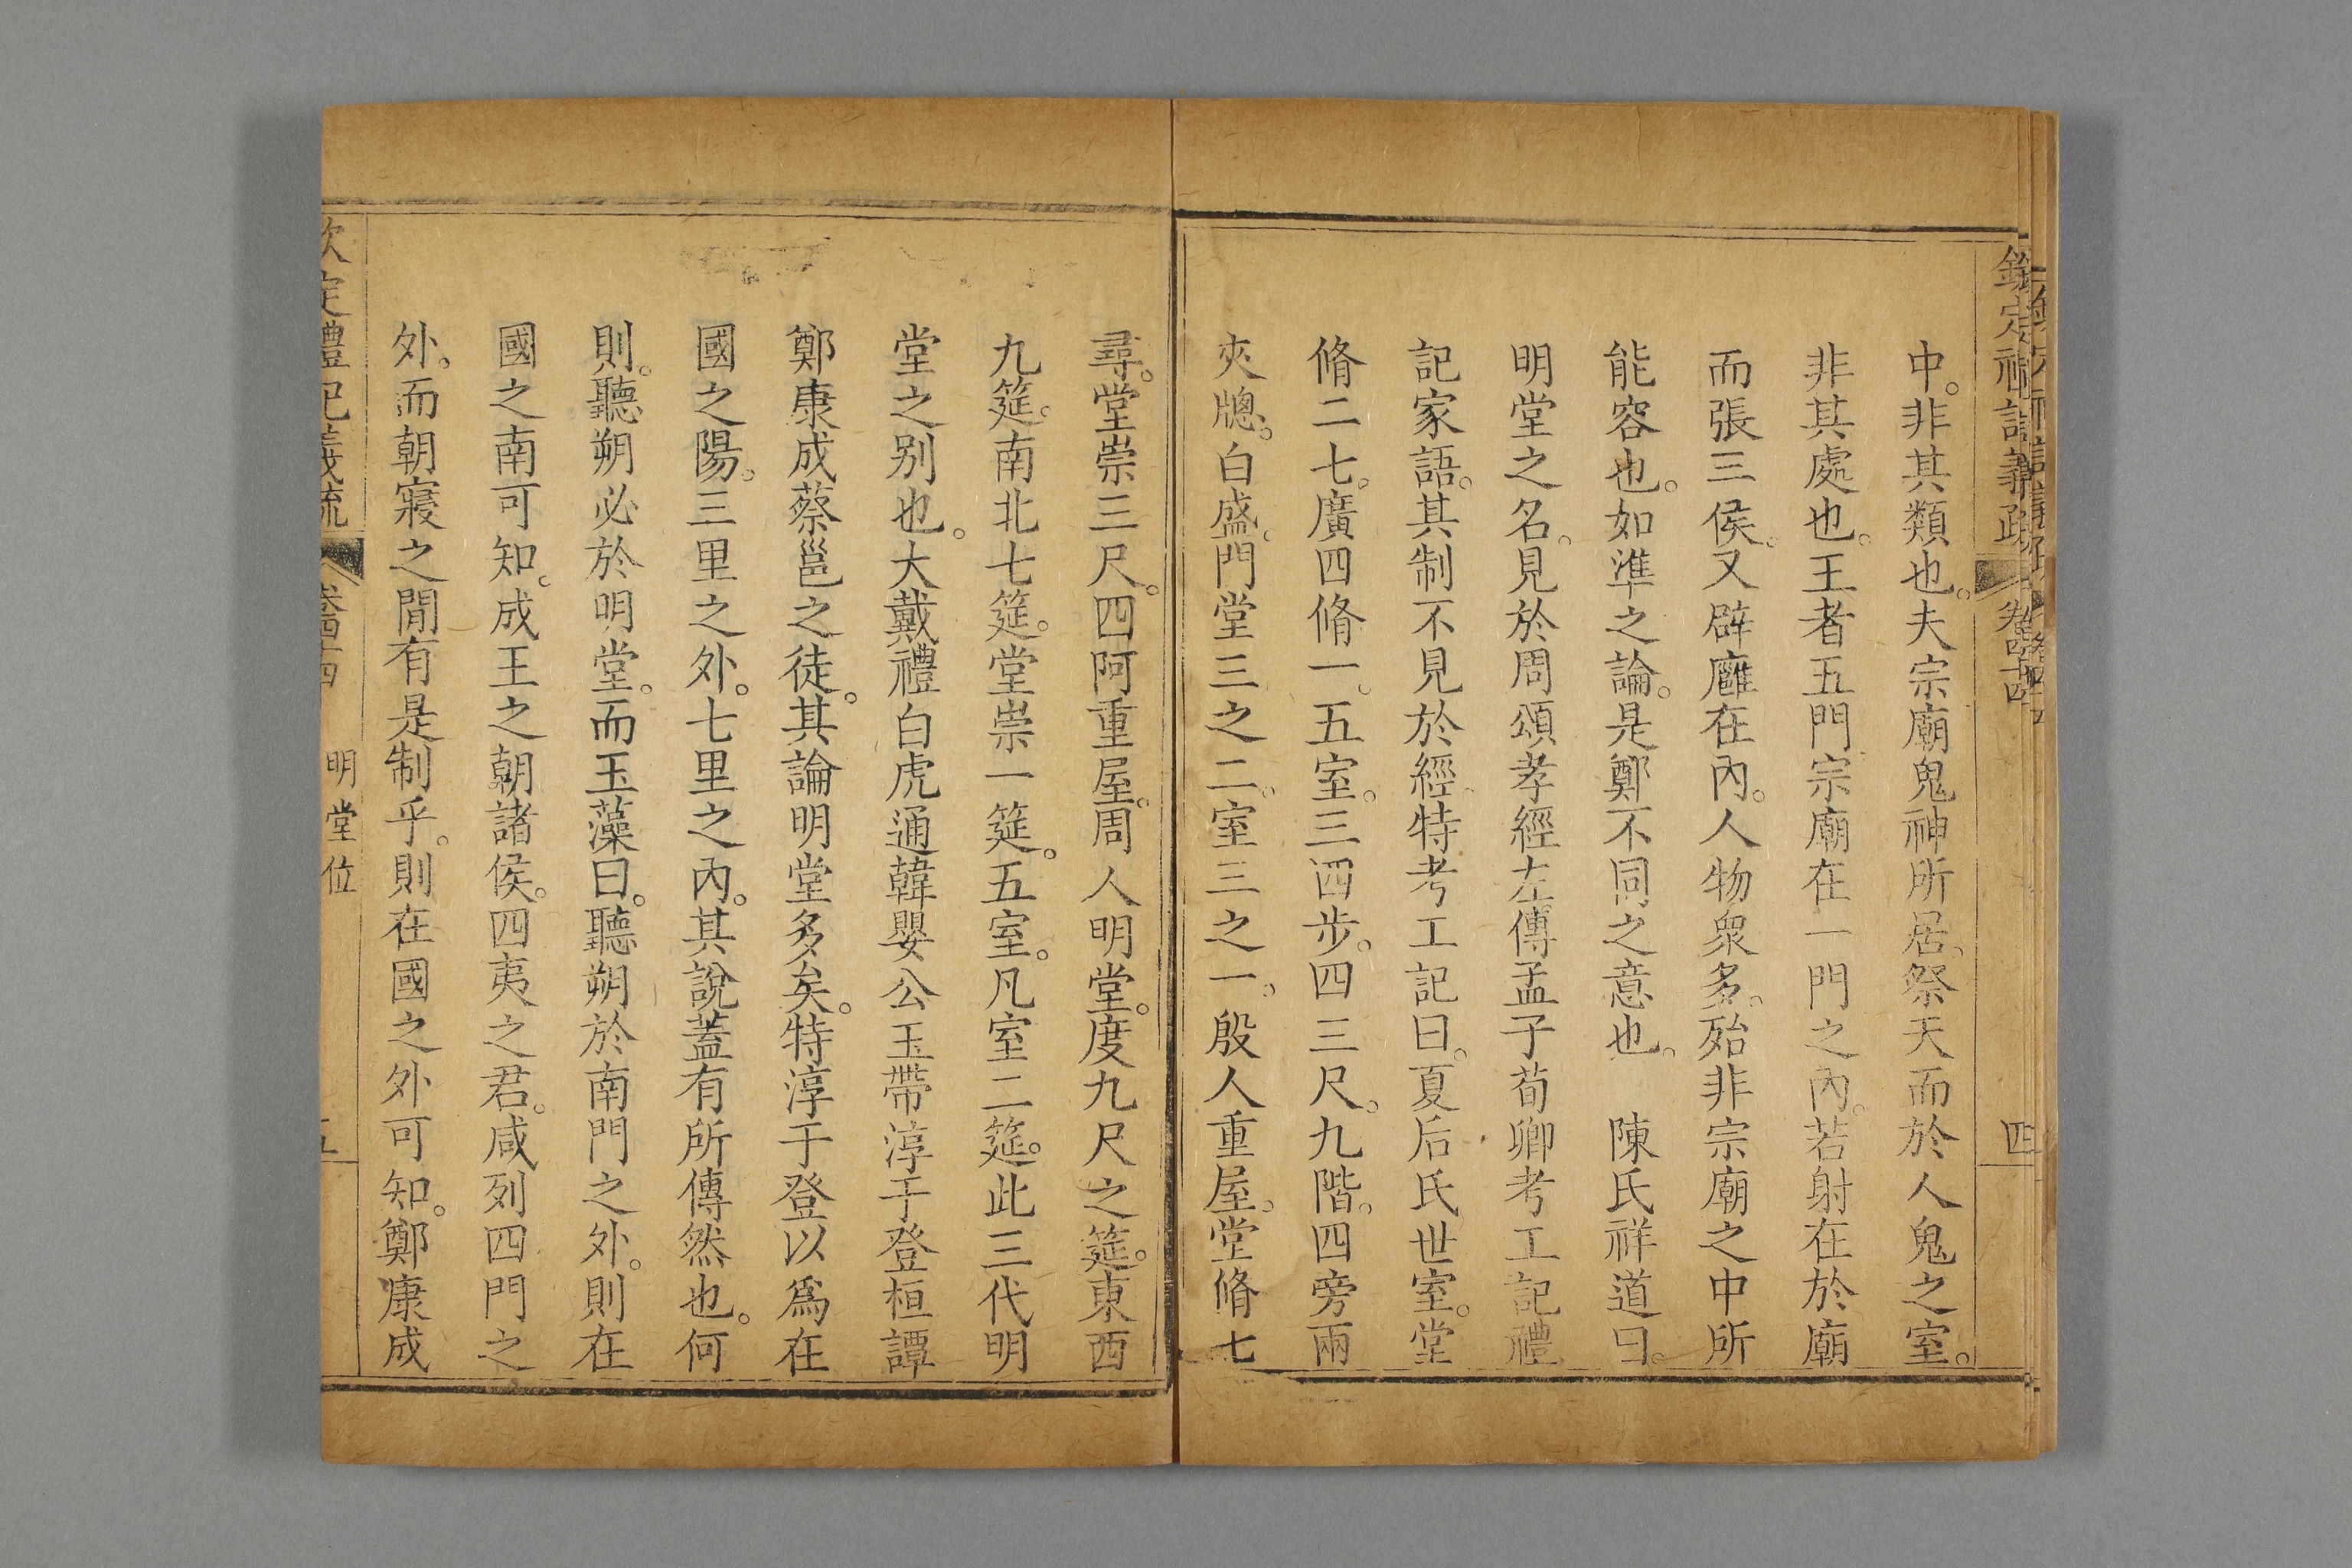 欽定禮記義疏 卷四十四 四
中。非其類也。夫宗廟鬼神所居。祭天而於人鬼之室。
非其處也。王者五門宗廟在一門之內。若射在於廟
而張三侯。又辟廱在內。人物衆多。殆非宗廟之中所
能容也。如準之論。是鄭不同之意也。 陳氏祥道曰。
明堂之名。見於周頌孝經左傳孟子荀卿考工記禮
記家語。其制不見於經。特考工記曰。夏后氏世室。堂
脩二七。廣四脩一。五室。三四步。四三尺。九階。四旁兩
夾牕。白盛。門堂三之二。室三之一。殷人重屋。堂脩七
尋。堂崇三尺。四阿重屋。周人明堂。度九尺之筵。東西
九筵。南北七筵。堂崇一筵。五室。凡室二筵。此三代明
堂之別也。大戴禮白虎通韓嬰公玉帶淳于登桓譚
鄭康成蔡邕之徒。其論明堂多矣。特淳于登以爲在
國之陽。三里之外。七里之內。其說蓋有所傳然也。何
則。聽朔必於明堂。而玉藻曰。聽朔於南門之外。則在
國之南可知。成王之朝諸侯。四夷之君。咸列四門之
外。而朝寢之閒有是制乎。則在國之外可知。鄭康成
欽定禮記義疏 卷四十四 明堂位 五